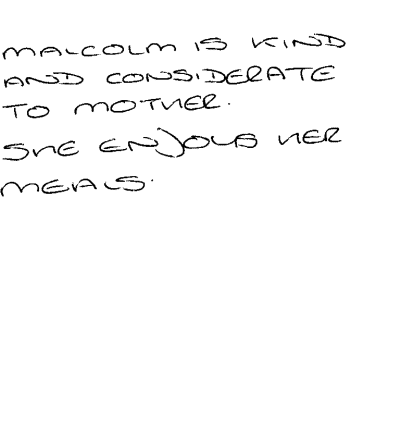 MALCOLM IS KIND
AND CONSIDERATE
TO MOTHER.
SHE ENJOYS HER
MEALS.